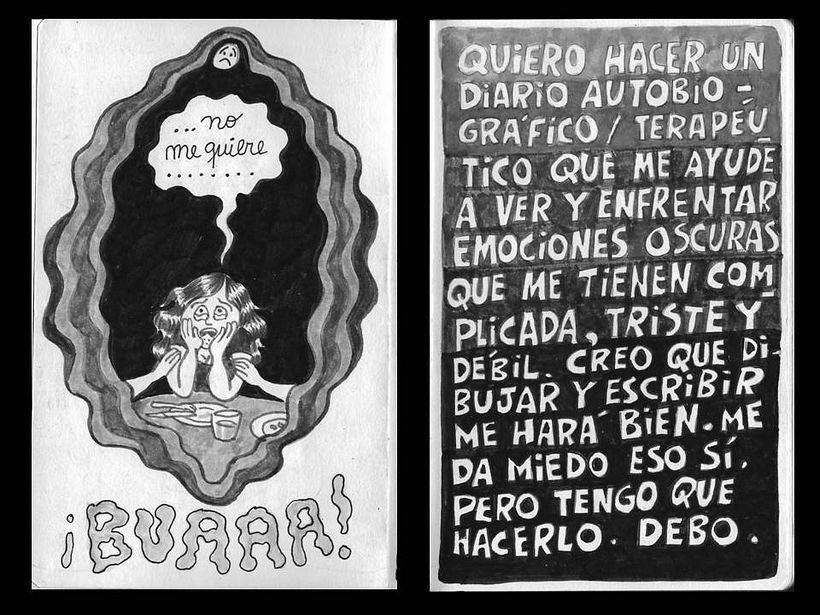 ...no
me quiere
........
¡BUAAA!
QUiERO HACER UN
DiARiO AUTOBIO-
GRÁFiCO / TERAPÉU
TiCO QUE ME AYUDE
A VER Y ENFRENTAR
EMOCiONES OSCURAS
QUE ME TiENEN COM
PLiCADA, TRiSTE Y
DÉBiL. CREO QUE Di-
BUJAR Y ESCRiBiR
ME HARÁ BiEN. ME
DA MiEDO ESO SÍ.
PERO TENGO QUE
HACERLO. DEBO.